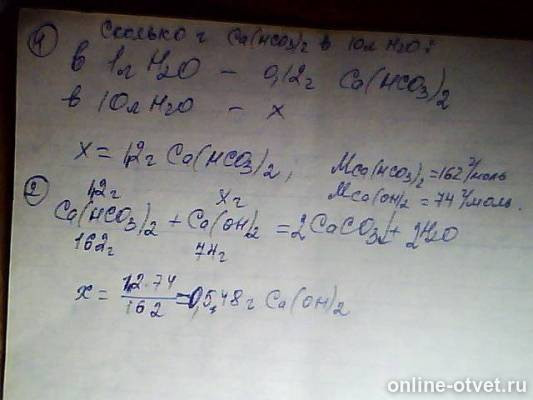 1) Сколько г Ca(HCO3)2 в 10л H2O?
в 1л H2O - 0,12г Ca(HCO3)2
в 10л H2O - x
x = 1,2г Ca(HCO3)2, MCa(HCO3)2 = 162 г/моль
MCa(OH)2 = 74 г/моль.
1,2г xг
2) Ca(HCO3)2 + Ca(OH)2 = 2CaCO3↓ + 2H2O
162г 74г
x = 1,2·74/162 = 0,548г Ca(OH)2
online-otvet.ru